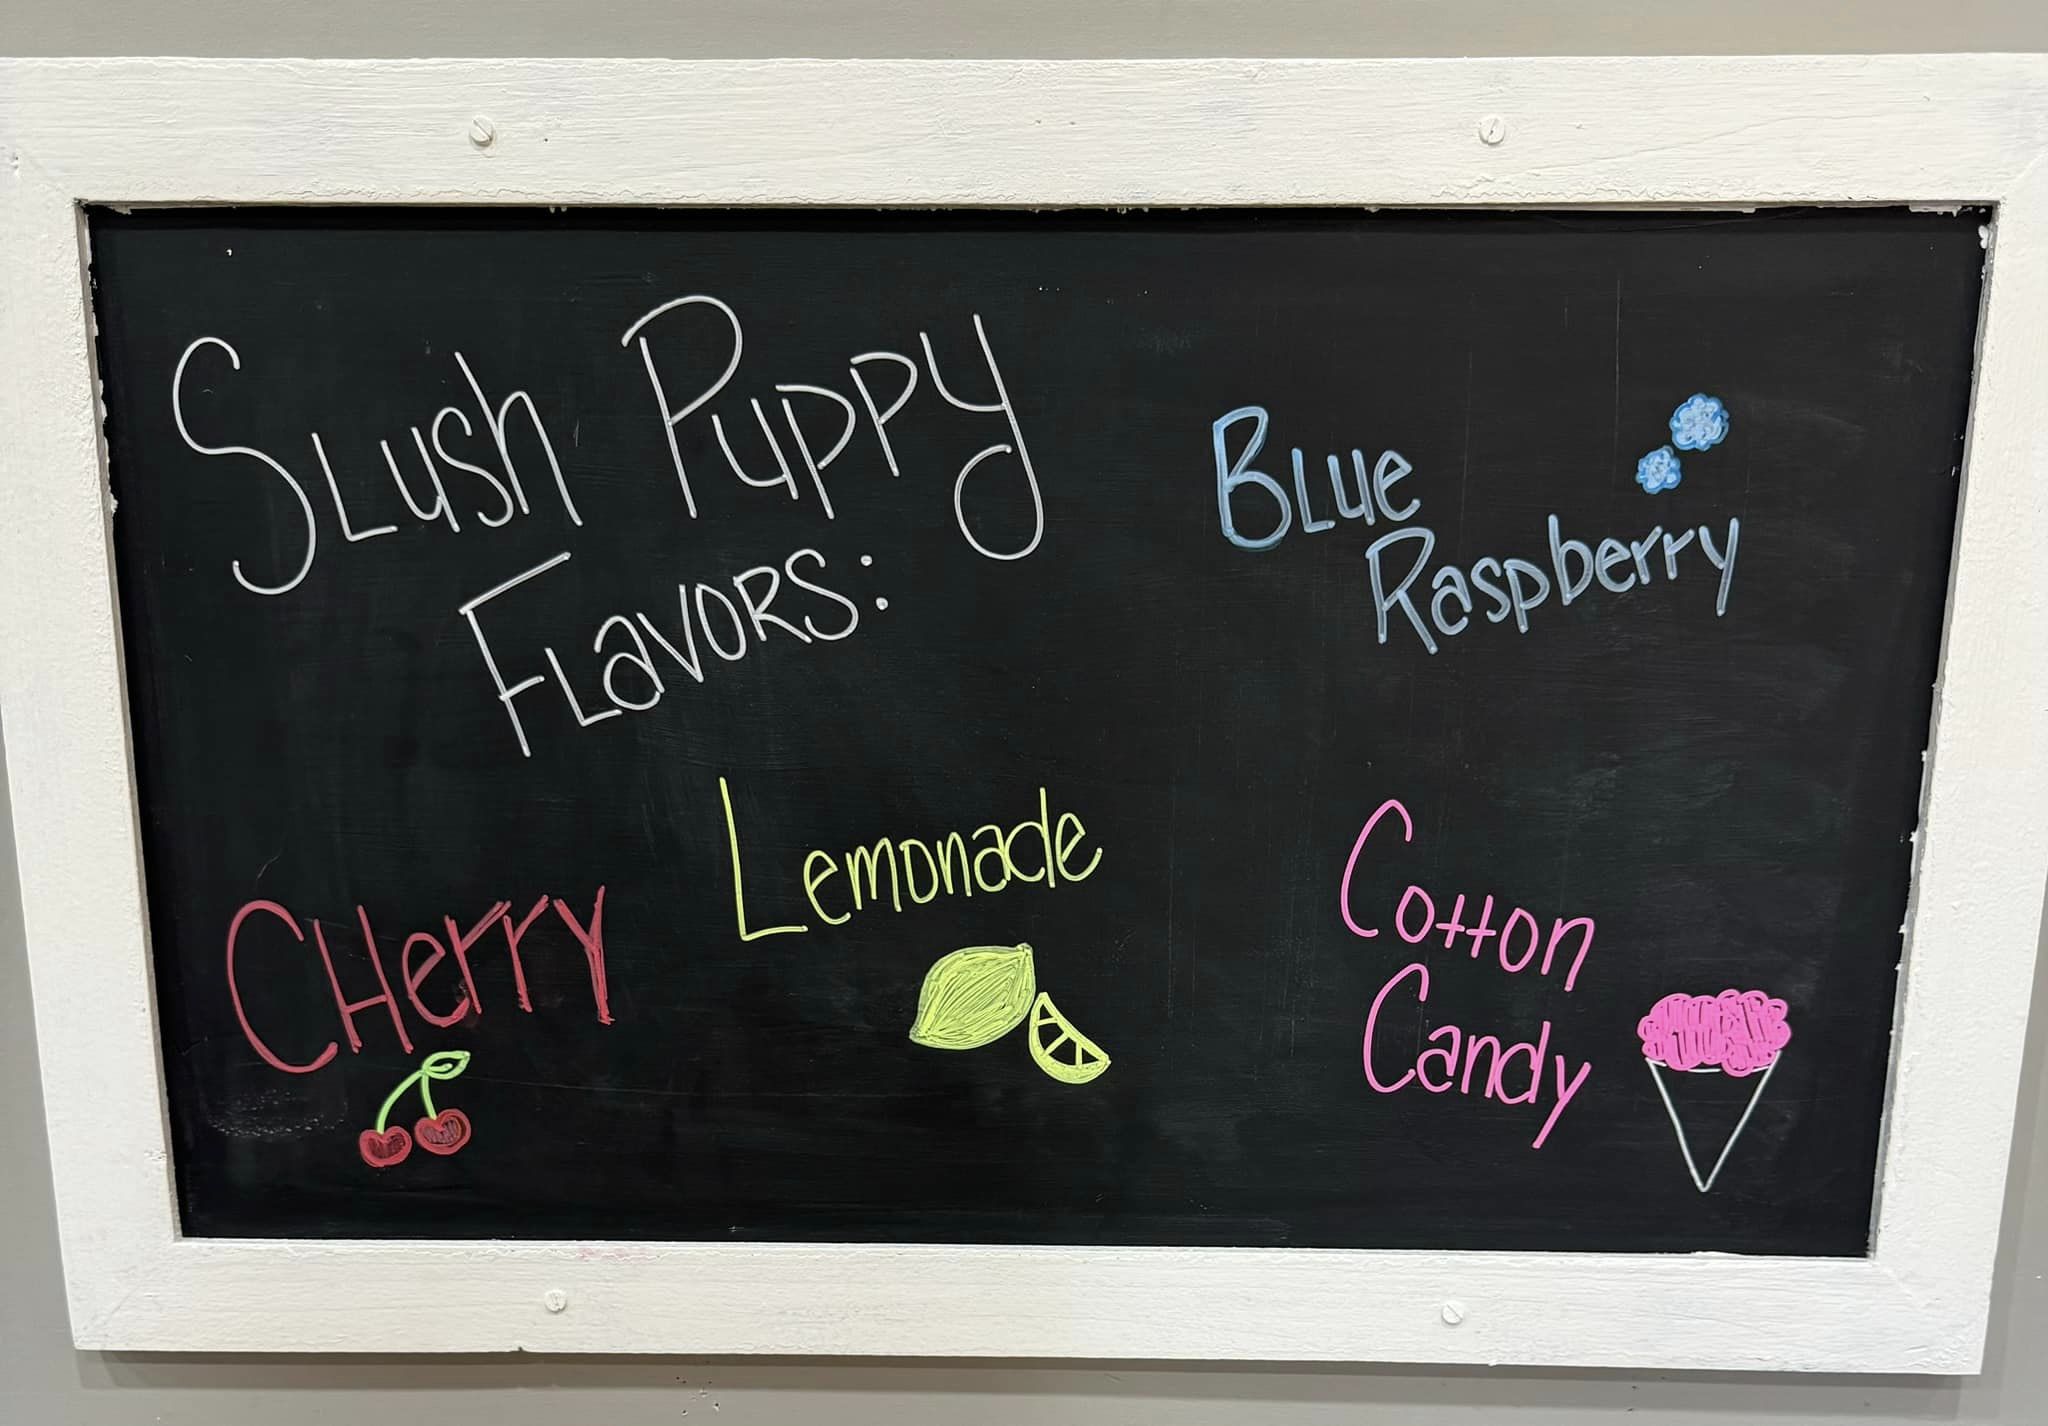 Slush Puppy
Flavors:
Blue
Raspberry
Lemonade
CHerry
Cotton
Candy